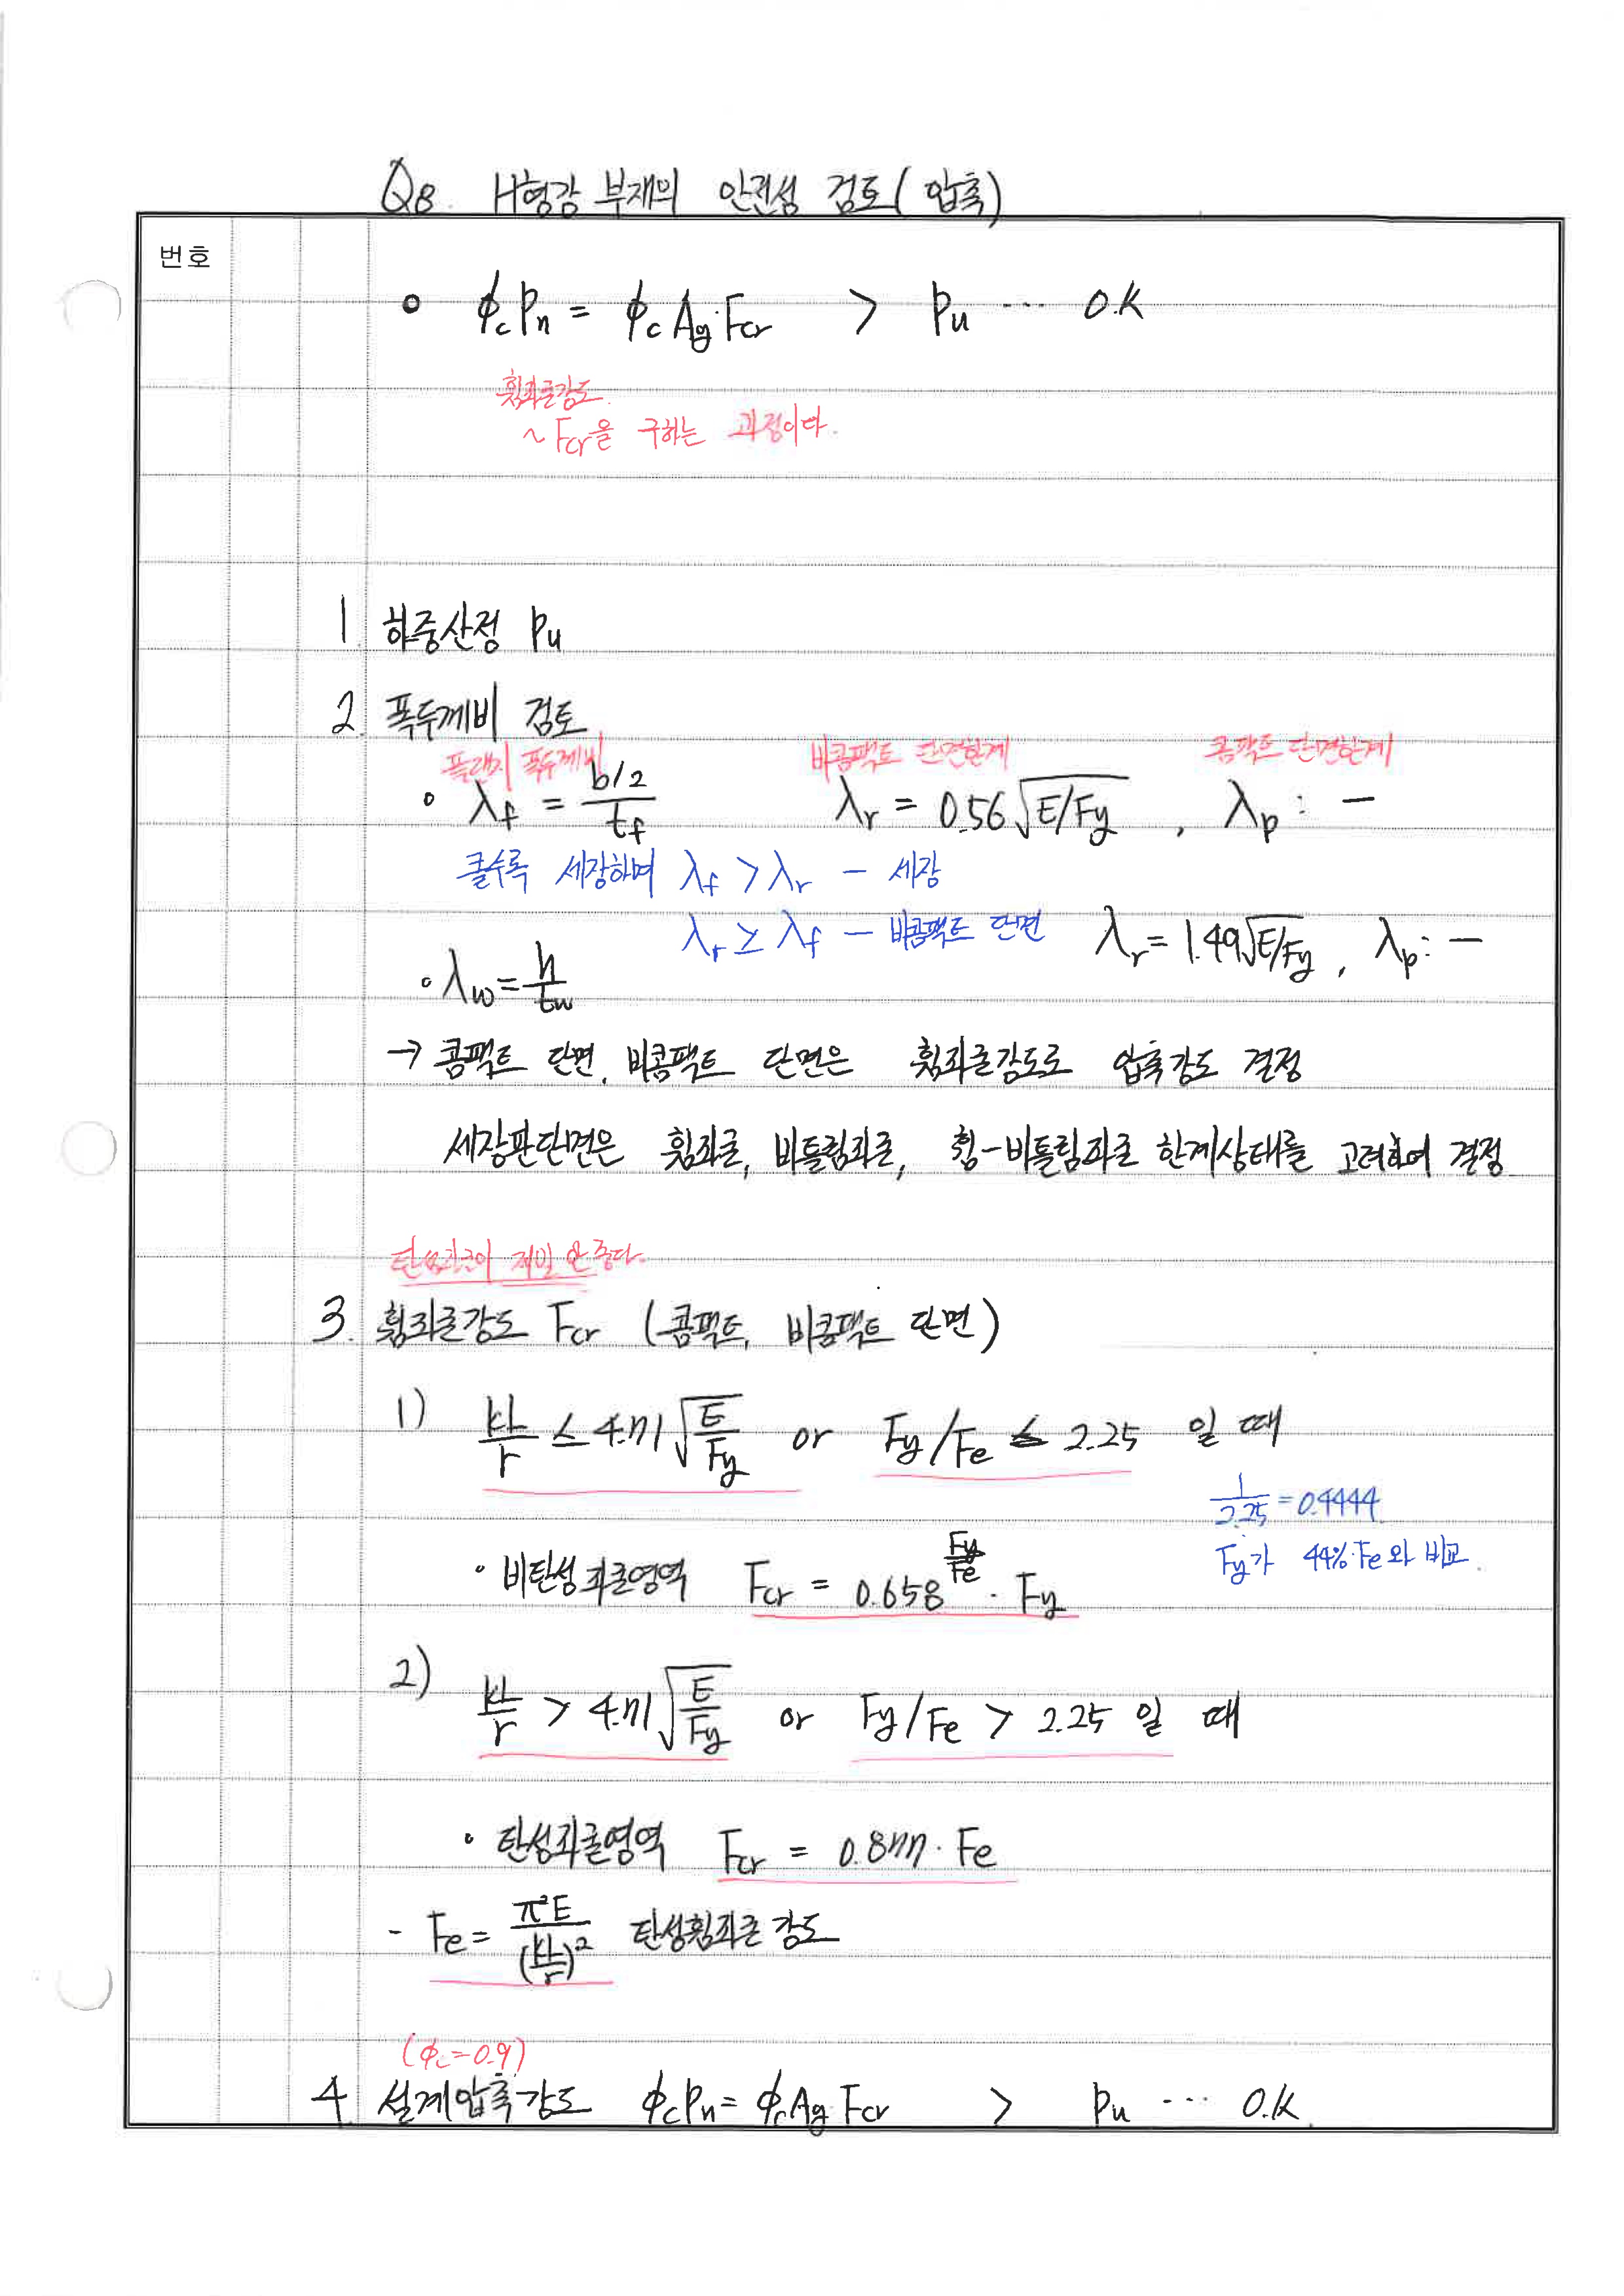 Q8. H형강 부재의 안전성 검토(압축)
번호
∘ ϕcPn = ϕc Ag·Fcr > Pu ··· O.K
휨좌굴강도
~ Fcr을 구하는 과정이다.
1. 하중산정 Pu
2. 폭두께비 검토
플랜지 폭두께비 비콤팩트 단면한계 콤팩트 단면한계
∘ λf = (b/2)/tf λr = 0.56√(E/Fy) , λp : —
클수록 세장하며 λf > λr — 세장
λr ≥ λf — 비콤팩트 단면 λr = 1.49√(E/Fy) , λp : —
∘ λw = h/tw
→ 콤팩트 단면, 비콤팩트 단면은 휨좌굴강도로 압축강도 결정
세장판단면은 휨좌굴, 비틀림좌굴, 휨-비틀림좌굴 한계상태를 고려하여 결정.
탄성좌굴이 제일 안 좋다.
3. 휨좌굴강도 Fcr (콤팩트, 비콤팩트 단면)
1) KL/r ≤ 4.71√(E/Fy) or Fy/Fe ≤ 2.25 일 때
1/2.25 = 0.4444
Fy가 44%·Fe와 비교.
· 비탄성좌굴영역 Fcr = 0.658^(Fy/Fe) · Fy
2) KL/r > 4.71√(E/Fy) or Fy/Fe > 2.25 일 때
· 탄성좌굴영역 Fcr = 0.877·Fe
- Fe = π²E/(KL/r)² 탄성휨좌굴강도
(ϕc=0.9)
4. 설계압축강도 ϕcPn = ϕcAg Fcr > Pu ··· O.K.